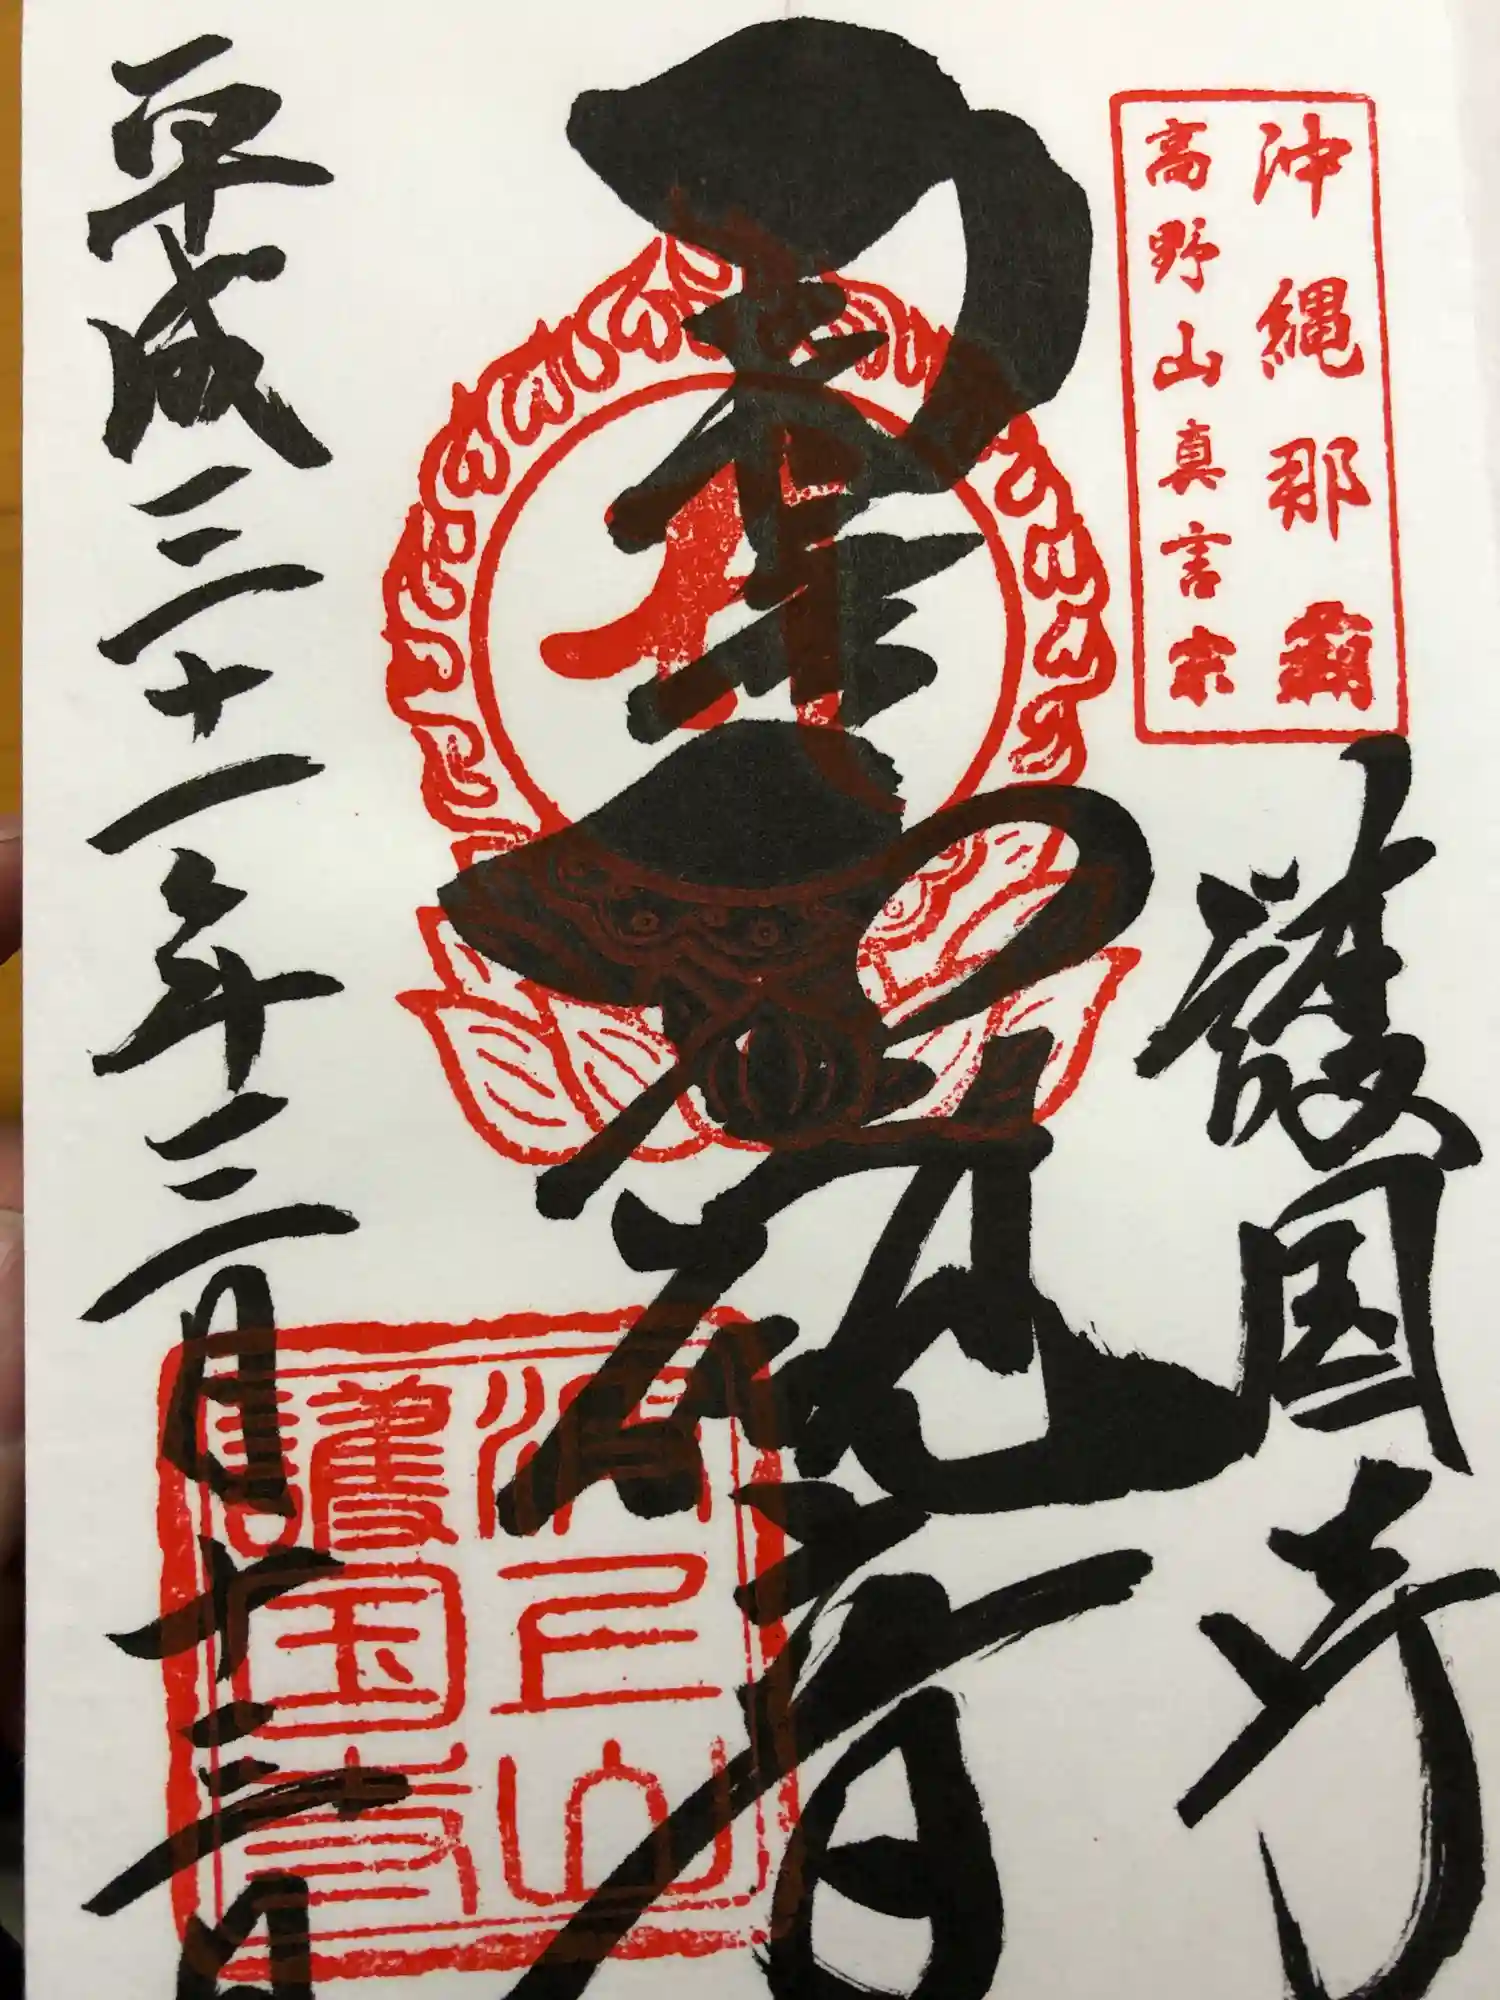 沖縄那覇
高野山真言宗
護国寺
観音
平成三十一年三月十三日
波上山
護国寺